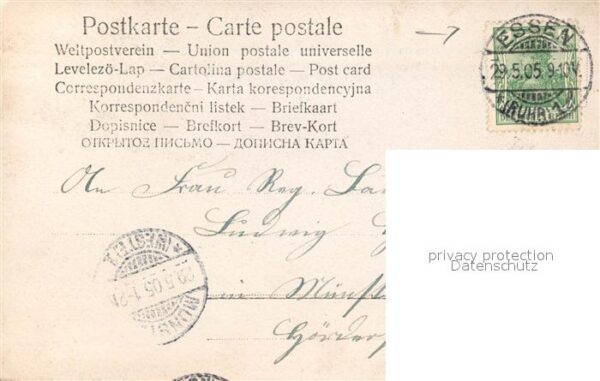 Postkarte – Carte postale
Weltpostverein — Union postale universelle
Levelezö-Lap — Cartolina postale — Post card
Correspondenzkarte – Karta korespondencyjna
Korrespondenční listek — Briefkaart
Dopisnice — Brefkort — Brev-Kort
ОТКРЫТОЕ ПИСЬМО — ДОПИСНА КАРТА
ESSEN
29.5.05. 9-10V.
(RUHR) 1
An Frau Reg.
Ludwig
in Münst
*(WESTF.)1
29.5.05. 1-2N
MÜNST
privacy protection
Datenschutz